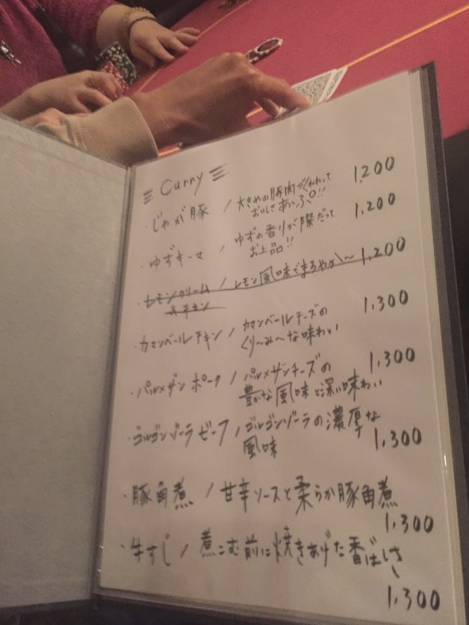 Curry
・じゃが豚 / 大きめの豚肉がくわわって 1,200
おいしさあいっぷ!!
・ゆずキーマ / ゆずの香りが際だって 1,200
お上品!!
・レモンクリーム / レモン風味でまろやか〜 1,200
チキン
・カマンベールチキン / カマンベールチーズの 1,300
くり〜み〜な味わい
・パルメザンポーク / パルメザンチーズの 1,300
豊かな風味と深い味わい
・ゴルゴンゾーラビーフ / ゴルゴンゾーラの濃厚な
風味 1,300
・豚角煮 / 甘辛ソースと柔らか豚角煮
1,300
・牛すじ / 煮こむ前に焼きあげた香ばしさ
1,300